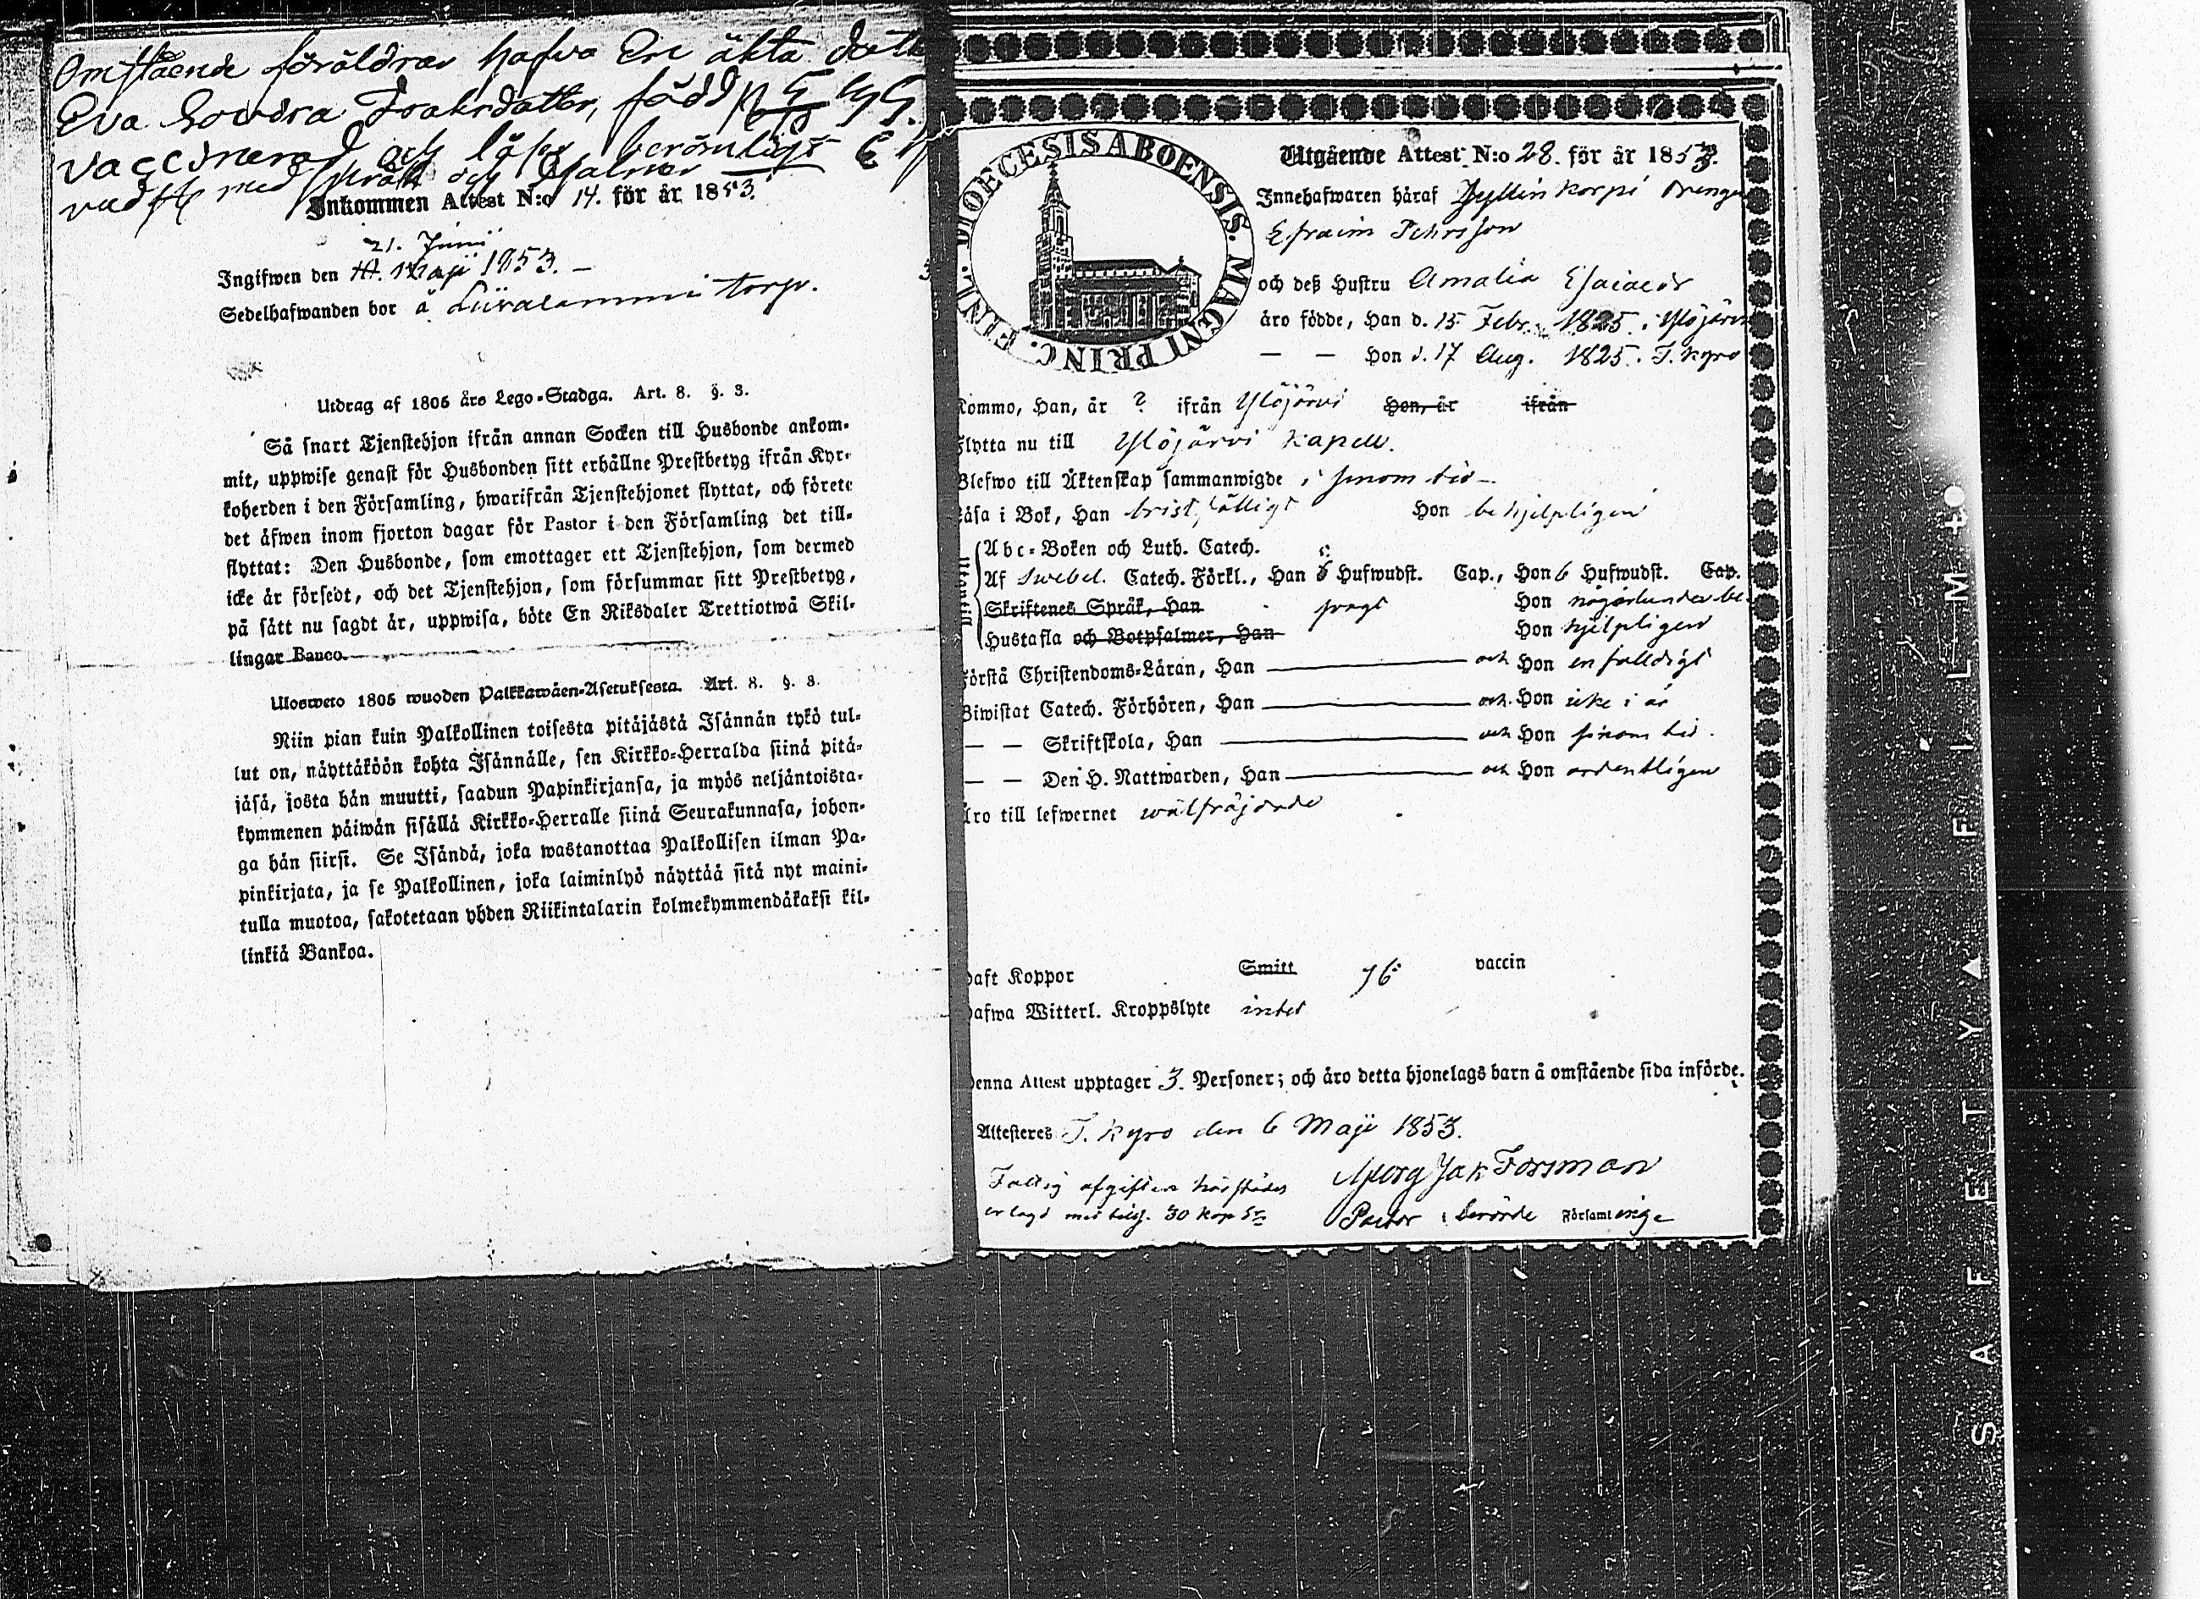 Omstående föräldrar hafva En äkta
Eva född
vaccinerad och läser berömligt

Inkommen Attest N:o 14. för år 1853.
21. Junii
Ingifwen den Maji 1853. –
Sedelhafwanden bor å torp.
Utdrag af 1805 års Lego-Stadga. Art. 8. §. 3.
Så snart Tjenstehjon ifrån annan Socken till Husbonde ankom-
mit, uppwise genast för Husbonden sitt erhållne Prestbetyg ifrån Kyr-
koherden i den Församling, hwarifrån Tjenstehjonet flyttat, och förete
det äfwen inom fjorton dagar för Pastor i den Församling det till-
flyttat: Den Husbonde, som emottager ett Tjenstehjon, som dermed
icke är försedt, och det Tjenstehjon, som försummar sitt Prestbetyg,
på sätt nu sagdt är, uppwisa, böte En Riksdaler Trettiotwå Skil-
lingar Banco.
Ulosweto 1805 wuoden Palkkawäen-Asetuksesta. Art. 8. §. 3.
Niin pian kuin Palkollinen toisesta pitäjästä Isännän tykö tul-
lut on, näyttäköön kohta Isännälle, sen Kirkko-Herralda siinä pitä-
jäsä, josta hän muutti, saadun Papinkirjansa, ja myös neljäntoista-
kymmenen päiwän sisällä Kirkko-Herralle siinä Seurakunnasa, johon-
ga hän siirsi. Se Isändä, joka wastanottaa Palkollisen ilman Pa-
pinkirjata, ja se Palkollinen, joka laiminlyö näyttää sitä nyt maini-
tulla muotoa, sakotetaan yhden Riikintalarin kolmekymmendäkaksi kil-
linkiä Bankoa.
DIOECESIS ABOENSIS. MAGNI PRINC. FINL.
Utgående Attest N:o 28. för år 1853.
Innehafwaren häraf korpi drengen
Efraim Pehrsson
och deß Hustru Amalia Esaiaedr
äro födde, Han d. 15 Febr. 1825. i Ylöjärvi
— — Hon d. 17 Aug. 1825. T. Kyro
Kommo, Han, år ? ifrån Ylöjärvi Hon, år ifrån
Flytta nu till Ylöjärvi Kapell.
Blefwo till Äktenskap sammanwigde i sinom tid –
Läsa i Bok, Han bristfälligt Hon behjelpligen
Abc-Boken och Luth. Catech.
Af Swebel. Catech. Förkl., Han 5 Hufwudst. Cap., Hon 6 Hufwudst. Cap.
Skriftenes Språk, Han svagt Hon någorlunda be-
Hustafla och Botpsalmer, Han Hon hjelpligen
Förstå Christendoms-Läran, Han — och Hon enfalldigt
Biwistat Catech. Förhören, Han — och Hon icke i år
— — Skriftskola, Han — och Hon sinom tid.
— — Den H. Nattwarden, Han — och Hon ordentligen
Äro till lefwernet wälfräjdade
Haft Koppor Smitt vaccin
Hafwa Witterl. Kroppslyte intet
Denna Attest upptager 3. Personer; och äro detta hjonelags barn å omstående sida införde.
Attesteres T. Kyro den 6 Maji 1853.
Fattig afgiften härstädes Georg Jak Forsman
erlagd med 30 kop Sr Pastor i berörde Församlinge
S A F E T Y ▲ F I L M